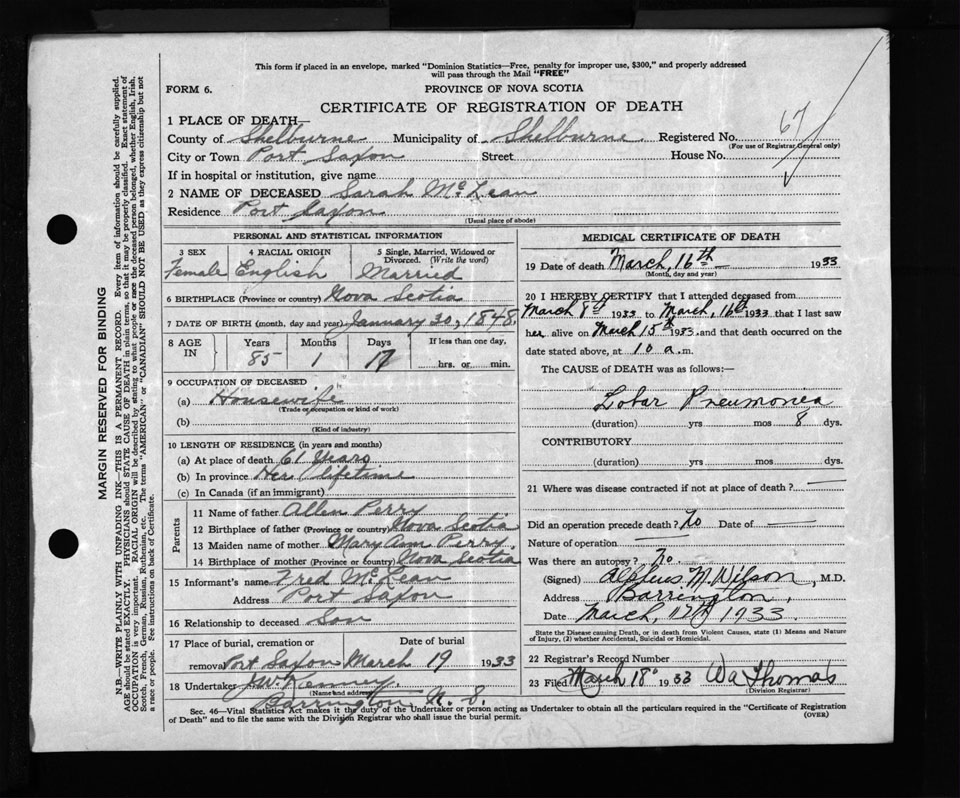 This form if placed in an envelope, marked "Dominion Statistics—Free, penalty for improper use, $300," and properly addressed
will pass through the Mail "FREE"
FORM 6.
PROVINCE OF NOVA SCOTIA
CERTIFICATE OF REGISTRATION OF DEATH
1 PLACE OF DEATH—
County of Shelburne Municipality of Shelburne Registered No. 67
(For use of Registrar General only)
City or Town Port Saxon Street House No.
If in hospital or institution, give name
2 NAME OF DECEASED Sarah McLean
Residence Port Saxon
(Usual place of abode)
PERSONAL AND STATISTICAL INFORMATION
3 SEX 4 RACIAL ORIGIN 5 Single, Married, Widowed or
Divorced. (Write the word)
Female English Married
6 BIRTHPLACE (Province or country) Nova Scotia
7 DATE OF BIRTH (month, day and year) January 30, 1848.
8 AGE IN Years Months Days If less than one day,
85 1 17 hrs. or min.
9 OCCUPATION OF DECEASED
(a) Housewife
(Trade or occupation or kind of work)
(b)
(Kind of industry)
10 LENGTH OF RESIDENCE (in years and months)
(a) At place of death 61 Years
(b) In province Her Lifetime
(c) In Canada (if an immigrant)
Parents
11 Name of father Allen Perry
12 Birthplace of father (Province or country) Nova Scotia
13 Maiden name of mother Mary Ann Perry.
14 Birthplace of mother (Province or country) Nova Scotia
15 Informant's name Fred McLean
Address Port Saxon
16 Relationship to deceased Son
17 Place of burial, cremation or Date of burial
removal Port Saxon March 19 1933
18 Undertaker J.W. Kenney.
(Name and address)
Barrington N. S.
MEDICAL CERTIFICATE OF DEATH
19 Date of death March, 16th 1933
(Month, day and year)
20 I HEREBY CERTIFY that I attended deceased from
March 8th 1933 to March, 16th 1933 that I last saw
her alive on March 15th 1933. and that death occurred on the
date stated above, at 10 a.m.
The CAUSE of DEATH was as follows:—
Lobar Pneumonia
(duration) yrs mos 8 dys.
CONTRIBUTORY
(duration) yrs mos dys.
21 Where was disease contracted if not at place of death?
Did an operation precede death? No Date of
Nature of operation
Was there an autopsy? No.
(Signed) Alpheus M. Wilson, M.D.
Address Barrington,
Date March, 17th 1933.
State the Disease causing Death, or in death from Violent Causes, state (1) Means and Nature
of Injury, (2) whether Accidental, Suicidal or Homicidal.
22 Registrar's Record Number
23 Filed March 18 1933 Wa Thomas
(Division Registrar)
Sec. 46—Vital Statistics Act makes it the duty of the Undertaker or person acting as Undertaker to obtain all the particulars required in the "Certificate of Registration
of Death" and to file the same with the Division Registrar who shall issue the burial permit.
(OVER)
MARGIN RESERVED FOR BINDING
N.B.—WRITE PLAINLY WITH UNFADING INK—THIS IS A PERMANENT RECORD. Every item of information should be carefully supplied.
AGE should be stated EXACTLY. PHYSICIANS should STATE CAUSE OF DEATH in plain terms, so that it may be properly classified. Exact statement of
OCCUPATION is very important. RACIAL ORIGIN will be described by stating to what people or race the deceased person belonged, whether English, Irish,
Scotch, French, German, Russian, Ruthenian, etc. The terms "AMERICAN" or "CANADIAN" SHOULD NOT BE USED as they express citizenship but not
a race or people. See instructions on back of Certificate.